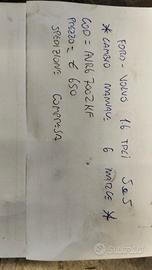 FORD - VOLVO 1.6 TDCI 5@5
* CAMBIO MANUALE 6 MARCE *
COD = AV6R 7002 KF
PREZZO = € 650
SPEDIZIONE COMPRESA
subito